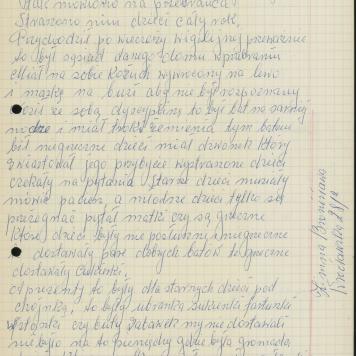 Tak mówiono na przebrańca?
Straszono nim dzieci cały rok,
Przychodził po wieczerzy wigilijnej przeważnie
to był sąsiad danego domu w przebraniu
Miał na sobie kożuch wywrócony na lewo
i maskę na buzi aby nie był rozpoznany
nosił ze sobą dyscyplinę to był bat na sarniej
nodze i miał troki z rzemienia tym batem
bił niegrzeczne dzieci miał dzwonek który
zwiastował jego przybycie wystraszone dzieci
czekały na pytania Starsze dzieci musiały
mówić pacierz, a młodsze dzieci tylko się
przeżegnać pytał matki czy są grzeczne
które dzieci były nie posłuszne i niegrzeczne
to dostawały parę dobrych batów te grzeczne
dostawały cukierki,
a prezenty to były dla starszych dzieci pod
choinką, to były ubranka sukienki fartuszki
wstążki czy buty zabawek my nie dostawali
nie było na to pieniędzy gdzie była gromada